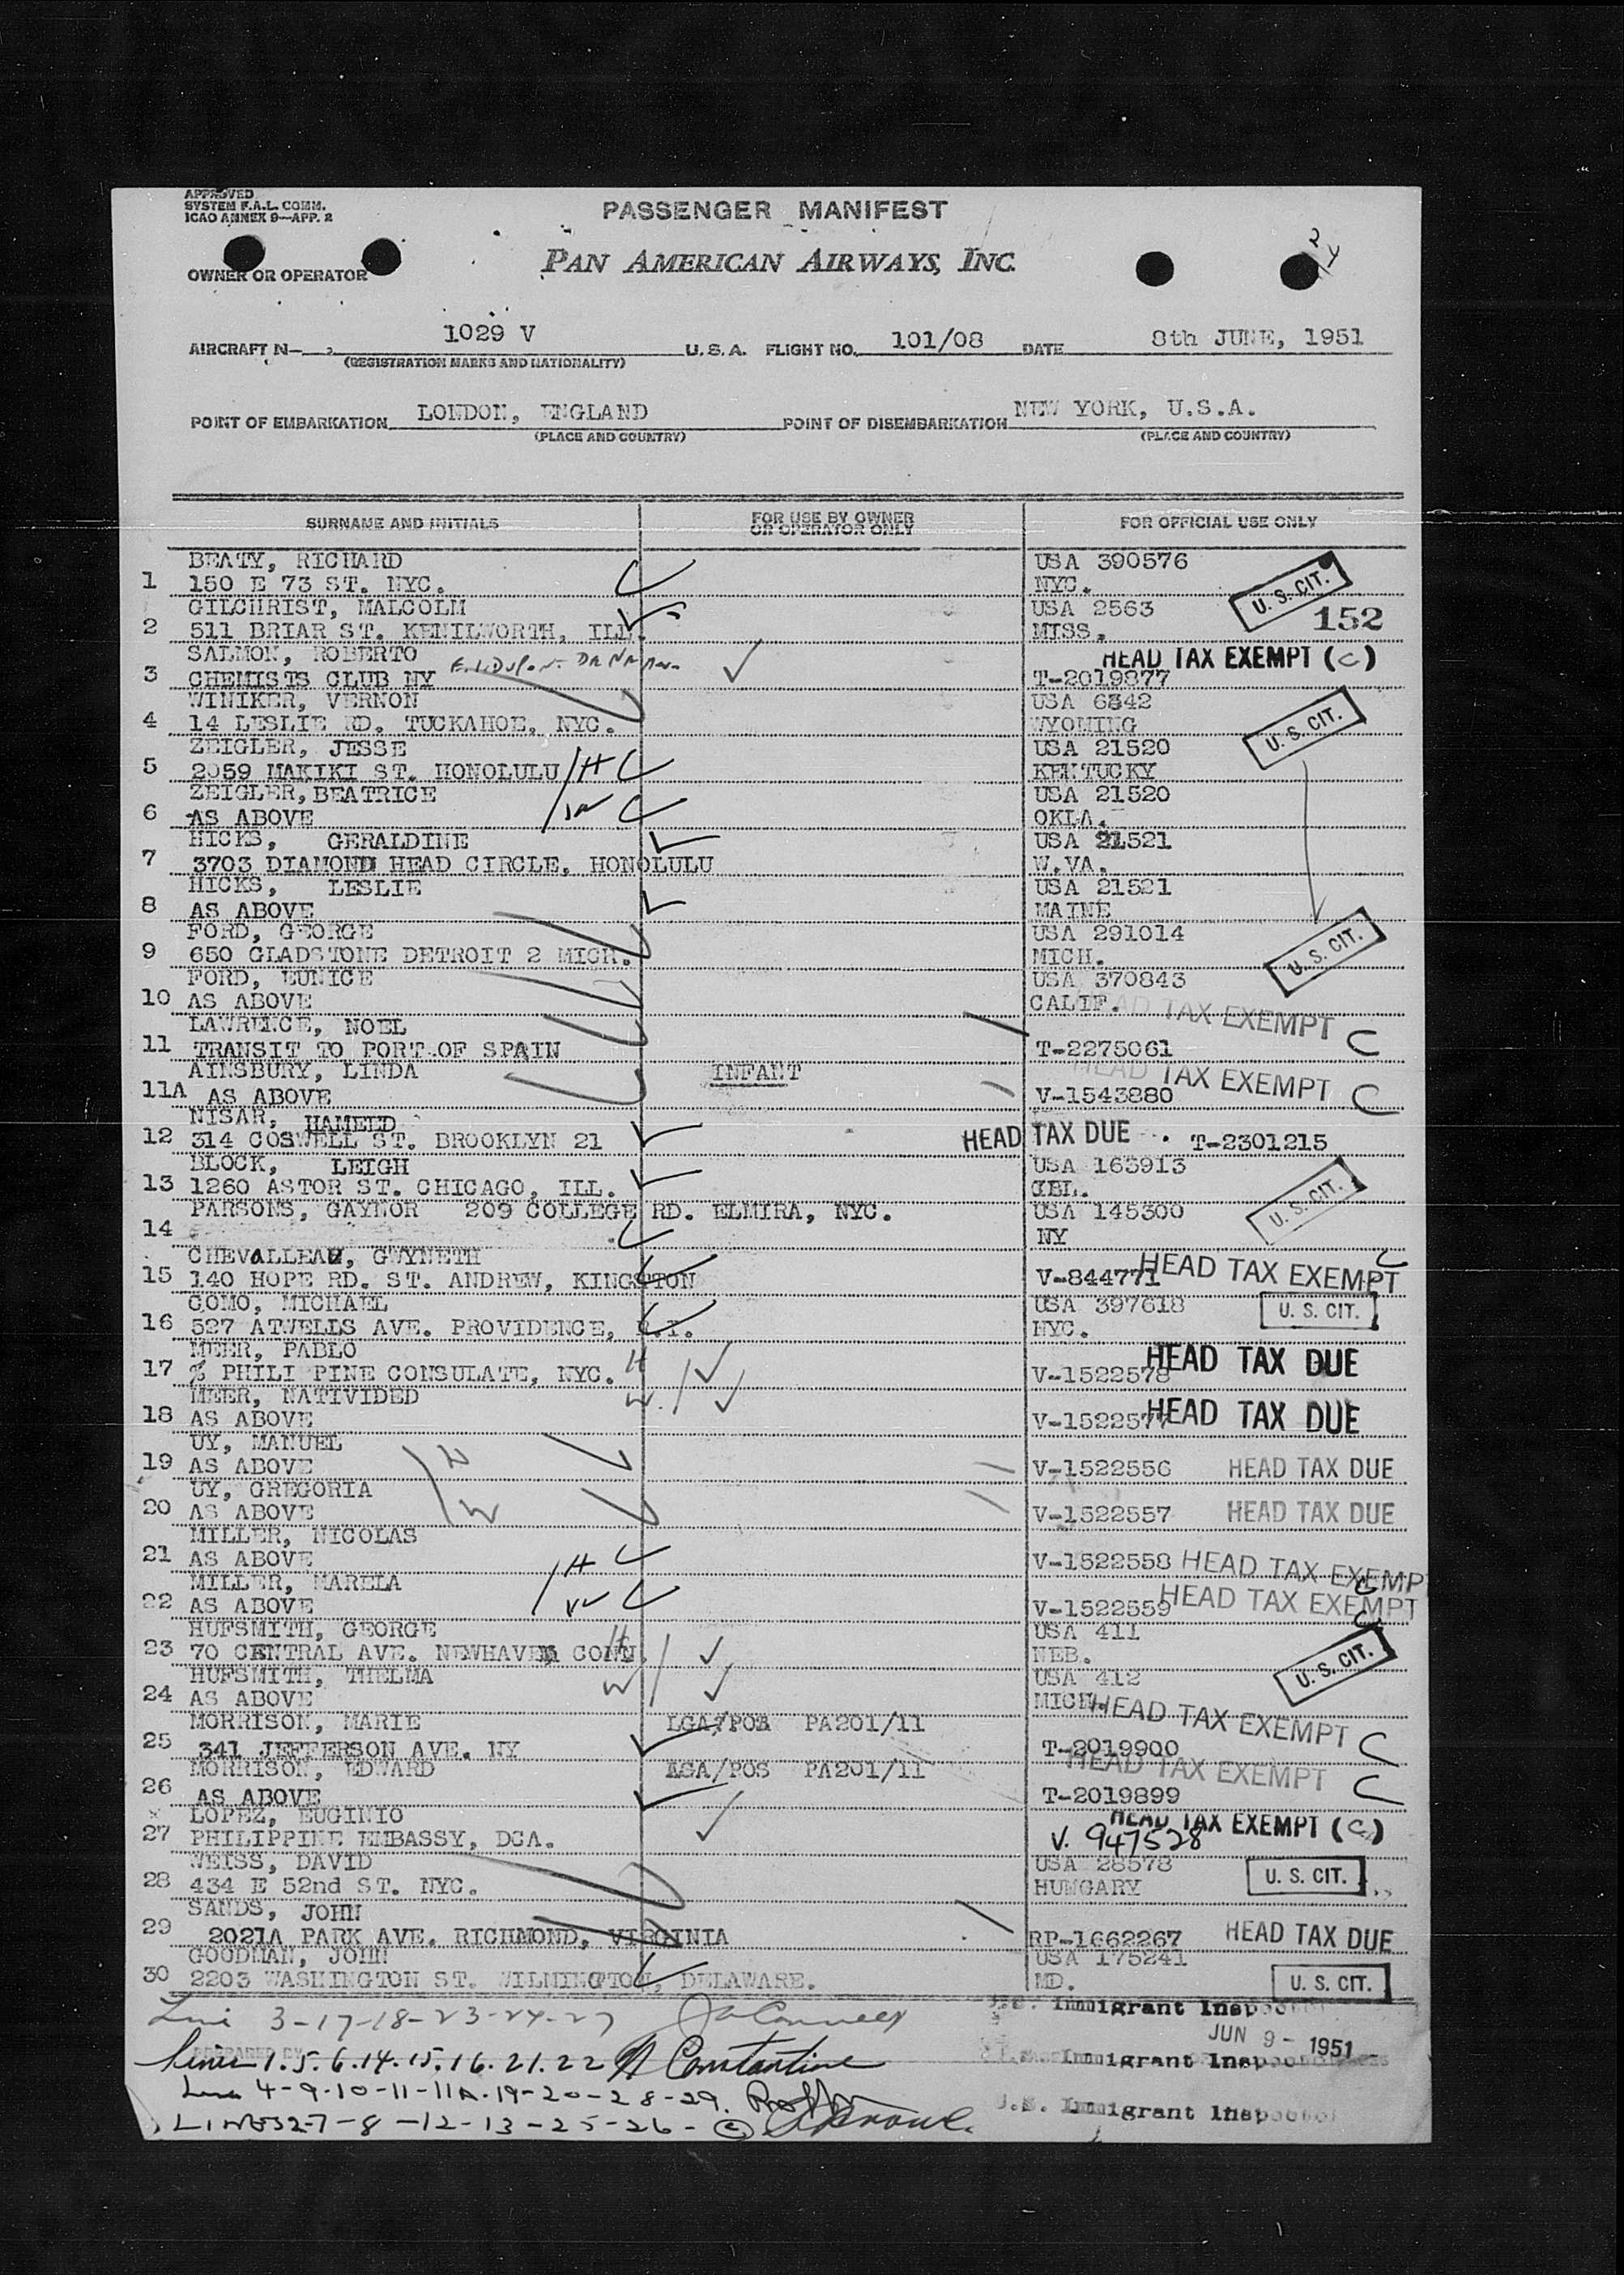 APPROVED
SYSTEM F.A.L. COMM.
ICAO ANNEX 9—APP. 2
PASSENGER MANIFEST
OWNER OR OPERATOR
PAN AMERICAN AIRWAYS, INC.
AIRCRAFT N— 1029 V U.S.A. FLIGHT NO. 101/08 DATE 8th JUNE, 1951
(REGISTRATION MARKS AND NATIONALITY)
POINT OF EMBARKATION LONDON, ENGLAND POINT OF DISEMBARKATION NEW YORK, U.S.A.
(PLACE AND COUNTRY) (PLACE AND COUNTRY)
SURNAME AND INITIALS FOR USE BY OWNER OR OPERATOR ONLY FOR OFFICIAL USE ONLY
BEATY, RICHARD USA 390576
1 150 E 73 ST. NYC. NYC. U. S. CIT.
GILCHRIST, MALCOLM USA 2563 152
2 511 BRIAR ST. KENILWORTH, ILL. MISS.
SALMON, ROBERTO HEAD TAX EXEMPT (C)
3 CHEMISTS CLUB NY T-2019877
WINIKER, VERNON USA 6342
4 14 LESLIE RD. TUCKAHOE, NYC. WYOMING U. S. CIT.
ZEIGLER, JESSE USA 21520
5 2059 MAKIKI ST. HONOLULU H KENTUCKY
ZEIGLER, BEATRICE USA 21520
6 AS ABOVE W OKLA.
HICKS, GERALDINE USA 21521
7 3703 DIAMOND HEAD CIRCLE. HONOLULU W.VA.
HICKS, LESLIE USA 21521
8 AS ABOVE MAINE
FORD, GEORGE USA 291014
9 650 GLADSTONE DETROIT 2 MICH. MICH. U. S. CIT.
FORD, EUNICE USA 370843
10 AS ABOVE CALIF.
LAWRENCE, NOEL HEAD TAX EXEMPT C
11 TRANSIT TO PORT OF SPAIN T-2275061
AINSBURY, LINDA INFANT HEAD TAX EXEMPT C
11A AS ABOVE V-1543880
NISAR, HAMEED
12 314 COSWELL ST. BROOKLYN 21 HEAD TAX DUE T-2301215
BLOCK, LEIGH USA 163913
13 1260 ASTOR ST. CHICAGO, ILL. U. S. CIT.
PARSONS, GAYNOR 209 COLLEGE RD. ELMIRA, NYC. USA 145300
14 NY
CHEVALLEAU, GWYNETH C
15 140 HOPE RD. ST. ANDREW, KINGSTON V-844771 HEAD TAX EXEMPT
COMO, MICHAEL USA 397618 U. S. CIT.
16 527 ATWELLS AVE. PROVIDENCE, R.I. NYC.
MEER, PABLO H HEAD TAX DUE
17 % PHILI PINE CONSULATE, NYC. V-1522578
MEER, NATIVIDED W.
18 AS ABOVE V-1522577 HEAD TAX DUE
UY, MANUEL H
19 AS ABOVE V-1522556 HEAD TAX DUE
UY, GREGORIA W
20 AS ABOVE V-1522557 HEAD TAX DUE
MILLER, NICOLAS
21 AS ABOVE H V-1522558 HEAD TAX EXEMPT C
MILLER, MARELA
22 AS ABOVE W V-1522559 HEAD TAX EXEMPT C
HUFSMITH, GEORGE H USA 411
23 70 CENTRAL AVE. NEWHAVEN CONN. NEB. U. S. CIT.
HUFSMITH, THELMA W USA 412
24 AS ABOVE MICH.
MORRISON, MARIE LGA/POS PA201/11 HEAD TAX EXEMPT C
25 341 JEFFERSON AVE. NY T-2019900
MORRISON, EDWARD LGA/POS PA201/11 HEAD TAX EXEMPT C
26 AS ABOVE T-2019899
LOPEZ, EUGINIO HEAD TAX EXEMPT (C)
27 PHILIPPINE EMBASSY, DCA. V. 947528
WEISS, DAVID USA 28578 U. S. CIT.
28 434 E 52nd ST. NYC. HUNGARY
SANDS, JOHN
29 2021A PARK AVE. RICHMOND, VIRGINIA RP-1662267 HEAD TAX DUE
GOODMAN, JOHN USA 175241
30 2203 WASHINGTON ST. WILMINGTON, DELAWARE. MD. U. S. CIT.
Line 3-17-18-23-24-27 U.S. Immigrant Inspector
JUN 9 - 1951
PREPARED BY
Lines 1.5.6.14.15.16.21.22 N Constantine Immigrant Inspector
Line 4-9-10-11-11A-19-20-28-29.
LINES 2-7-8-12-13-25-26- C U.S. Immigrant Inspector